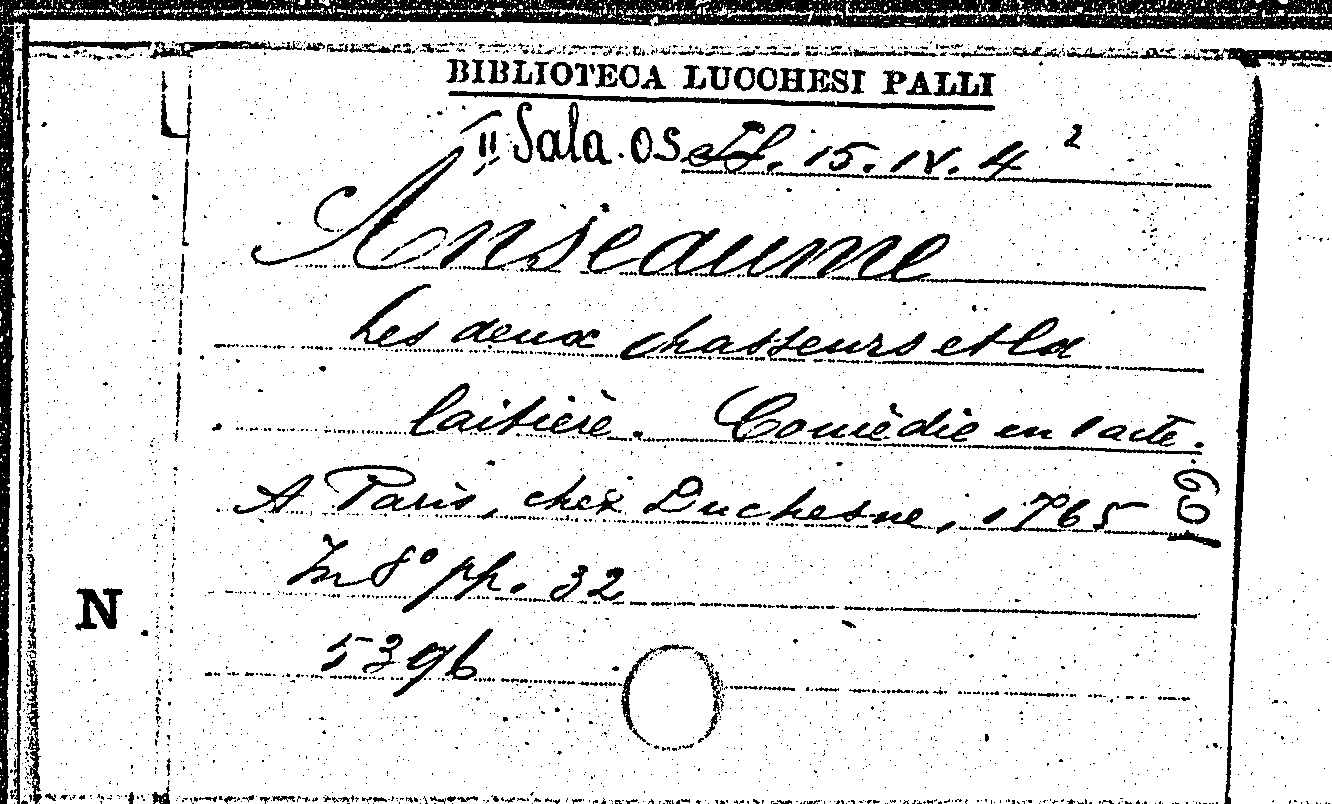 BIBLIOTECA LUCCHESI PALLI
II Sala. OS 15. IV. 4 2
Anseaume
Les deux chasseurs et la
laitière. Comèdie en 1 acte.
A Paris, chez Duchesne, 1765
In 8° pp. 32
5396
109
N